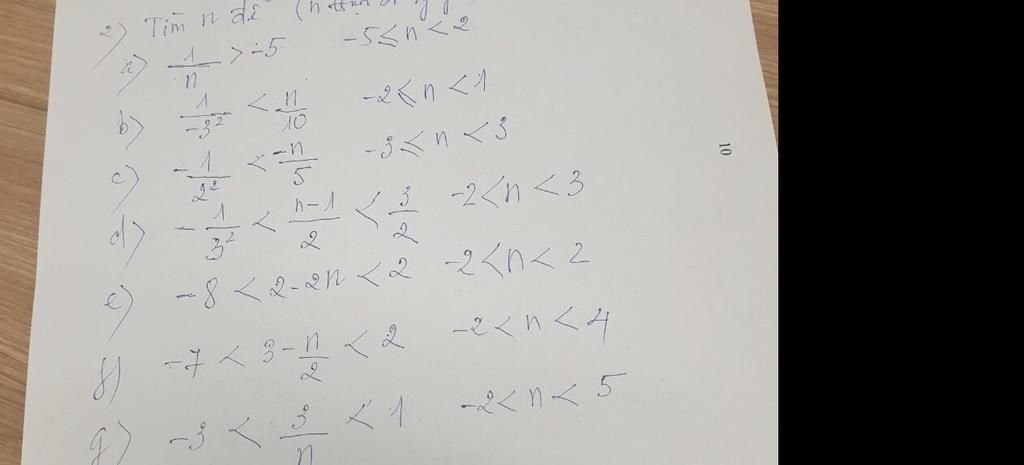 2) Tìm n để (n
a) 1/n > -5 -5 ≤ n < 2
b) 1/-3² < n/10 -2 ≤ n < 1
c) -1/2² < -n/5 -3 ≤ n < 3
d) -1/3² < n-1/2 < 3/2 -2 < n < 3
e) -8 < 2-2n < 2 -2 < n < 2
f) -7 < 3-n/2 < 2 -2 < n < 4
g) -3 < 3/n < 1 -2 < n < 5
10